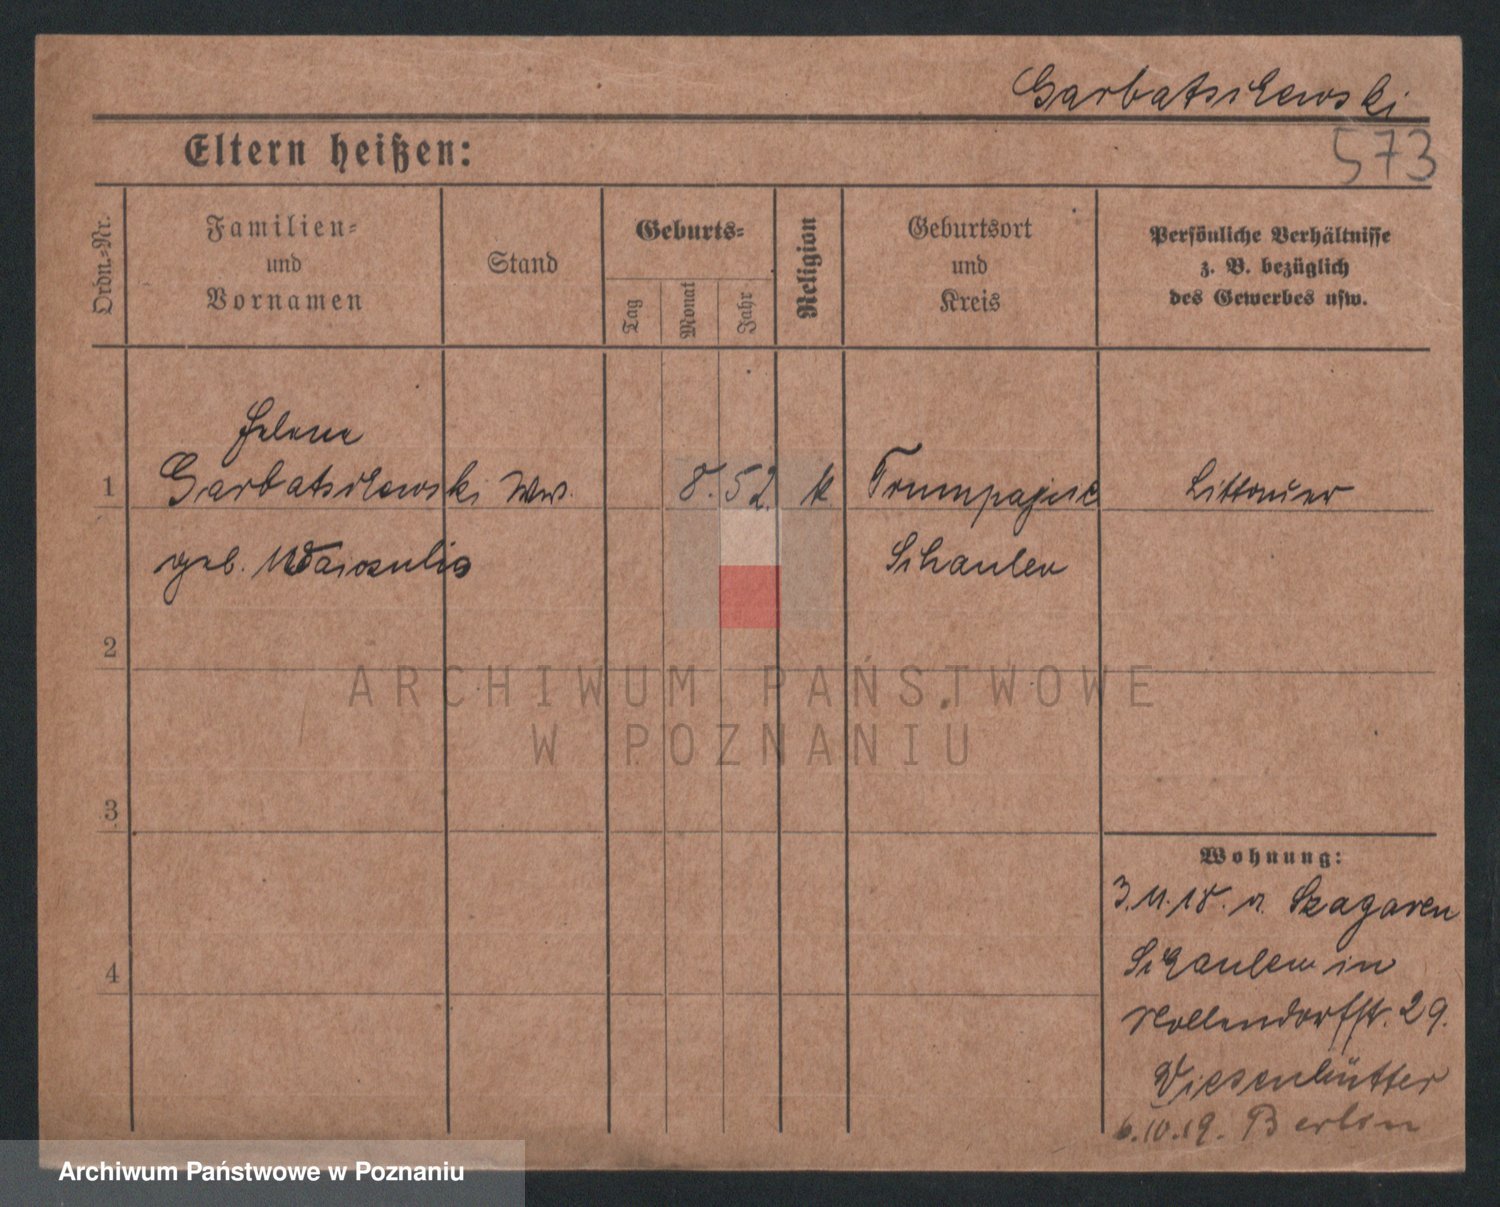 Garbatschewski
573
Eltern heißen:
Ordn.-Nr.
Familien-
und
Vornamen
Stand
Geburts-
Tag
Monat
Jahr
Religion
Geburtsort
und
Kreis
Persönliche Verhältnisse
z. B. bezüglich
des Gewerbes usw.
Helene
1 Garbatschewski Ww. 8. 52. k. Littauer
geb. Schaulen
2
3
4
Wohnung:
3.11.18. v. Szagaren
Schaulen in
Nollendorfstr. 29.
6.10.19. Berlin
ARCHIWUM PAŃSTWOWE
W POZNANIU
Archiwum Państwowe w Poznaniu